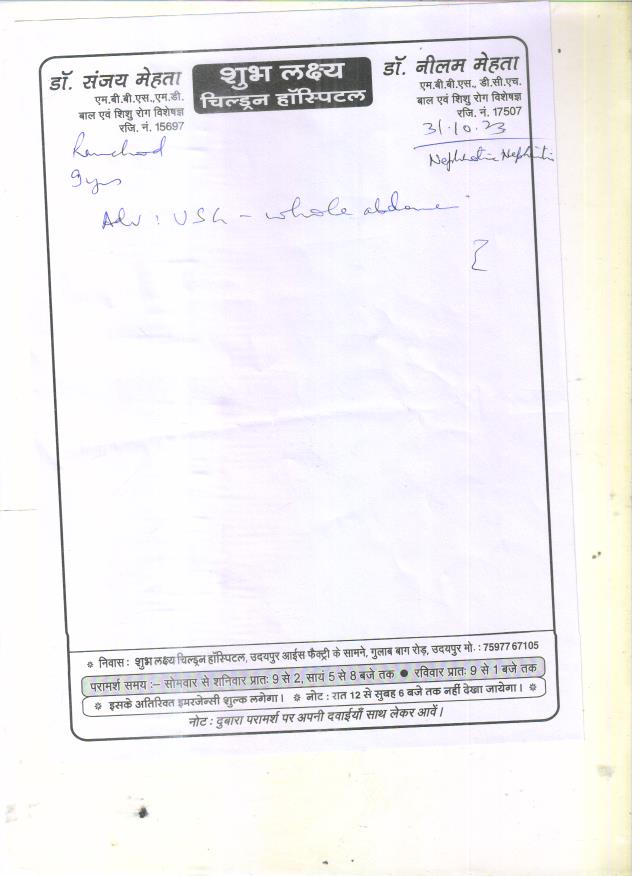 डॉ. संजय मेहता
एम.बी.बी.एस.,एम.डी.
बाल एवं शिशु रोग विशेषज्ञ
रजि. नं. 15697
शुभ लक्ष्य
चिल्ड्रन हॉस्पिटल
डॉ. नीलम मेहता
एम.बी.बी.एस., डी.सी.एच.
बाल एवं शिशु रोग विशेषज्ञ
रजि. नं. 17507
31.10.23
9 yrs
Adv : USG - whole
निवास : शुभ लक्ष्य चिल्ड्रन हॉस्पिटल, उदयपुर आईस फैक्ट्री के सामने, गुलाब बाग रोड़, उदयपुर मो. : 75977 67105
परामर्श समय :– सोमवार से शनिवार प्रातः 9 से 2, सायं 5 से 8 बजे तक ● रविवार प्रातः 9 से 1 बजे तक
इसके अतिरिक्त इमरजेन्सी शुल्क लगेगा। नोट : रात 12 से सुबह 6 बजे तक नहीं देखा जायेगा।
नोट : दुबारा परामर्श पर अपनी दवाईयाँ साथ लेकर आवें।